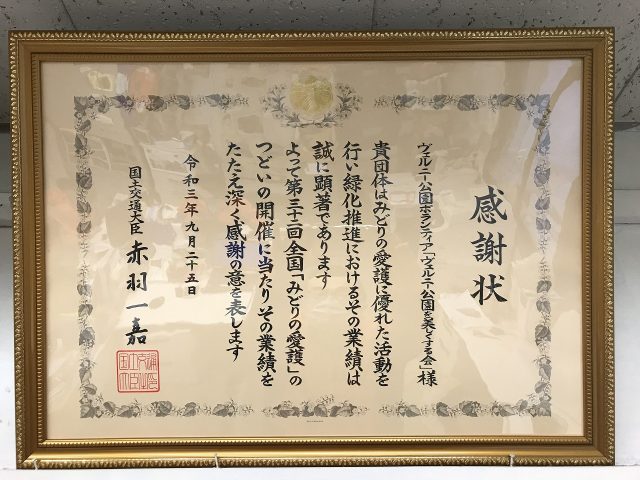 感謝状
ヴェルニー公園ボランティア「ヴェルニー公園を愛する会」様
貴団体はみどりの愛護に優れた活動を
行い緑化推進におけるその業績は
誠に顕著であります
よって第三十二回全国「みどりの愛護」の
つどいの開催に当たりその業績を
たたえ深く感謝の意を表します
令和三年九月二十五日
国土交通大臣 赤羽一嘉